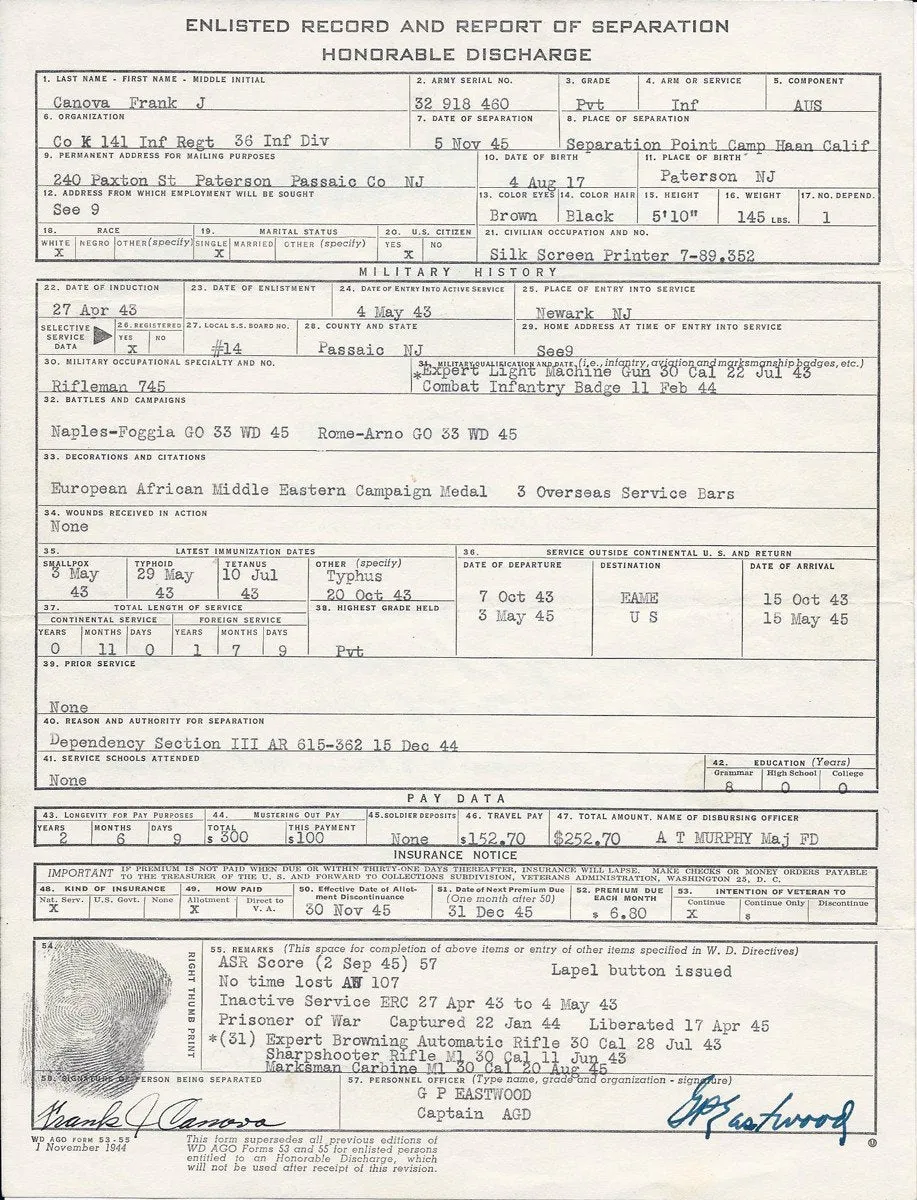 ENLISTED RECORD AND REPORT OF SEPARATION
HONORABLE DISCHARGE
1. LAST NAME - FIRST NAME - MIDDLE INITIAL 2. ARMY SERIAL NO. 3. GRADE 4. ARM OR SERVICE 5. COMPONENT
Canova Frank J 32 918 460 Pvt Inf AUS
6. ORGANIZATION 7. DATE OF SEPARATION 8. PLACE OF SEPARATION
Co K 141 Inf Regt 36 Inf Div 5 Nov 45 Separation Point Camp Haan Calif
9. PERMANENT ADDRESS FOR MAILING PURPOSES 10. DATE OF BIRTH 11. PLACE OF BIRTH
240 Paxton St Paterson Passaic Co NJ 4 Aug 17 Paterson NJ
12. ADDRESS FROM WHICH EMPLOYMENT WILL BE SOUGHT 13. COLOR EYES 14. COLOR HAIR 15. HEIGHT 16. WEIGHT 17. NO. DEPEND.
See 9 Brown Black 5'10" 145 LBS. 1
18. RACE 19. MARITAL STATUS 20. U.S. CITIZEN 21. CIVILIAN OCCUPATION AND NO.
WHITE NEGRO OTHER (specify) SINGLE MARRIED OTHER (specify) YES NO
X X X Silk Screen Printer 7-89.352
MILITARY HISTORY
22. DATE OF INDUCTION 23. DATE OF ENLISTMENT 24. DATE OF ENTRY INTO ACTIVE SERVICE 25. PLACE OF ENTRY INTO SERVICE
27 Apr 43 4 May 43 Newark NJ
SELECTIVE SERVICE DATA 26. REGISTERED 27. LOCAL S.S. BOARD NO. 28. COUNTY AND STATE 29. HOME ADDRESS AT TIME OF ENTRY INTO SERVICE
YES NO
X #14 Passaic NJ See9
30. MILITARY OCCUPATIONAL SPECIALTY AND NO. 31. MILITARY QUALIFICATION AND DATE (i.e., infantry, aviation and marksmanship badges, etc.)
*Expert Light Machine Gun 30 Cal 22 Jul 43
Rifleman 745 Combat Infantry Badge 11 Feb 44
32. BATTLES AND CAMPAIGNS
Naples-Foggia GO 33 WD 45 Rome-Arno GO 33 WD 45
33. DECORATIONS AND CITATIONS
European African Middle Eastern Campaign Medal 3 Overseas Service Bars
34. WOUNDS RECEIVED IN ACTION
None
35. LATEST IMMUNIZATION DATES 36. SERVICE OUTSIDE CONTINENTAL U. S. AND RETURN
SMALLPOX TYPHOID TETANUS OTHER (specify) DATE OF DEPARTURE DESTINATION DATE OF ARRIVAL
3 May 29 May 10 Jul Typhus
43 43 43 20 Oct 43 7 Oct 43 EAME 15 Oct 43
37. TOTAL LENGTH OF SERVICE 38. HIGHEST GRADE HELD 3 May 45 U S 15 May 45
CONTINENTAL SERVICE FOREIGN SERVICE
YEARS MONTHS DAYS YEARS MONTHS DAYS
0 11 0 1 7 9 Pvt
39. PRIOR SERVICE
None
40. REASON AND AUTHORITY FOR SEPARATION
Dependency Section III AR 615-362 15 Dec 44
41. SERVICE SCHOOLS ATTENDED 42. EDUCATION (Years)
Grammar High School College
None 8 0 0
PAY DATA
43. LONGEVITY FOR PAY PURPOSES 44. MUSTERING OUT PAY 45. SOLDIER DEPOSITS 46. TRAVEL PAY 47. TOTAL AMOUNT, NAME OF DISBURSING OFFICER
YEARS MONTHS DAYS TOTAL THIS PAYMENT
2 6 9 $ 300 $100 None $152.70 $252.70 A T MURPHY Maj FD
INSURANCE NOTICE
IMPORTANT IF PREMIUM IS NOT PAID WHEN DUE OR WITHIN THIRTY-ONE DAYS THEREAFTER, INSURANCE WILL LAPSE. MAKE CHECKS OR MONEY ORDERS PAYABLE
TO THE TREASURER OF THE U. S. AND FORWARD TO COLLECTIONS SUBDIVISION, VETERANS ADMINISTRATION, WASHINGTON 25, D. C.
48. KIND OF INSURANCE 49. HOW PAID 50. Effective Date of Allotment Discontinuance 51. Date of Next Premium Due (One month after 50) 52. PREMIUM DUE EACH MONTH 53. INTENTION OF VETERAN TO
Nat. Serv. U.S. Govt. None Allotment Direct to V. A. Continue Continue Only Discontinue
X X 30 Nov 45 31 Dec 45 $ 6.80 X $
54. RIGHT THUMB PRINT
55. REMARKS (This space for completion of above items or entry of other items specified in W. D. Directives)
ASR Score (2 Sep 45) 57 Lapel button issued
No time lost AW 107
Inactive Service ERC 27 Apr 43 to 4 May 43
Prisoner of War Captured 22 Jan 44 Liberated 17 Apr 45
*(31) Expert Browning Automatic Rifle 30 Cal 28 Jul 43
Sharpshooter Rifle M1 30 Cal 11 Jun 43
Marksman Carbine M1 30 Cal 20 Aug 45
56. SIGNATURE OF PERSON BEING SEPARATED 57. PERSONNEL OFFICER (Type name, grade and organization - signature)
G P EASTWOOD
Captain AGD
Frank J Canova GPEastwood
WD AGO FORM 53-55
1 November 1944
This form supersedes all previous editions of
WD AGO Forms 53 and 55 for enlisted persons
entitled to an Honorable Discharge, which
will not be used after receipt of this revision.